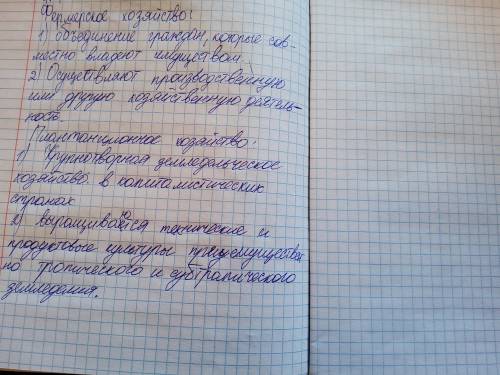 Фермерское хозяйство:
1) объединение граждан, которые сов-
местно владеют имуществом.
2) Осуществляют производственную
или другую хозяйственную деятель-
ность.
Плантанционное хозяйство:
1) Крупнотворная земледельческое
хозяйство в капиталистических
странах
2) выращиваются технические и
продуктовые культуры преимуществен
но тропического и субтропического
земледелия.